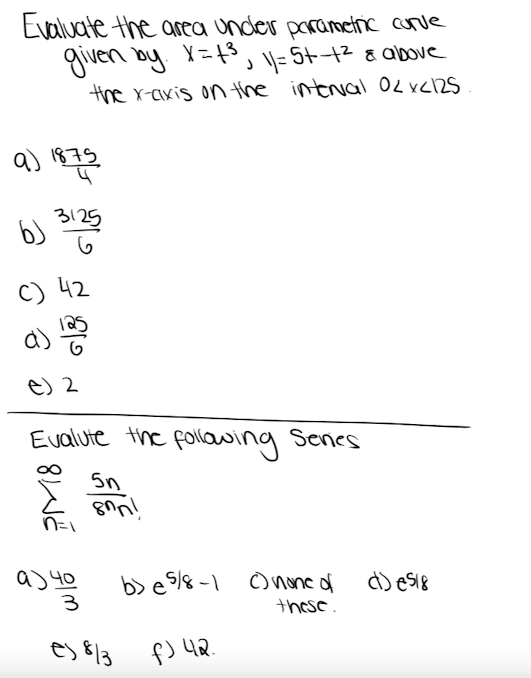 Evaluate the area under parametric curve
given by. x=t³, y=5t-t² & above
the x-axis on the interval 0<x<125.
a) 1875/4
b) 3125/6
c) 42
d) 125/6
e) 2
Evalute the following Series
∞
Σ 5n/8nn!
n=1
a) 40/3 b) e^5/8 -1 c) none of these. d) e^5/8
e) 8/3 f) 42.